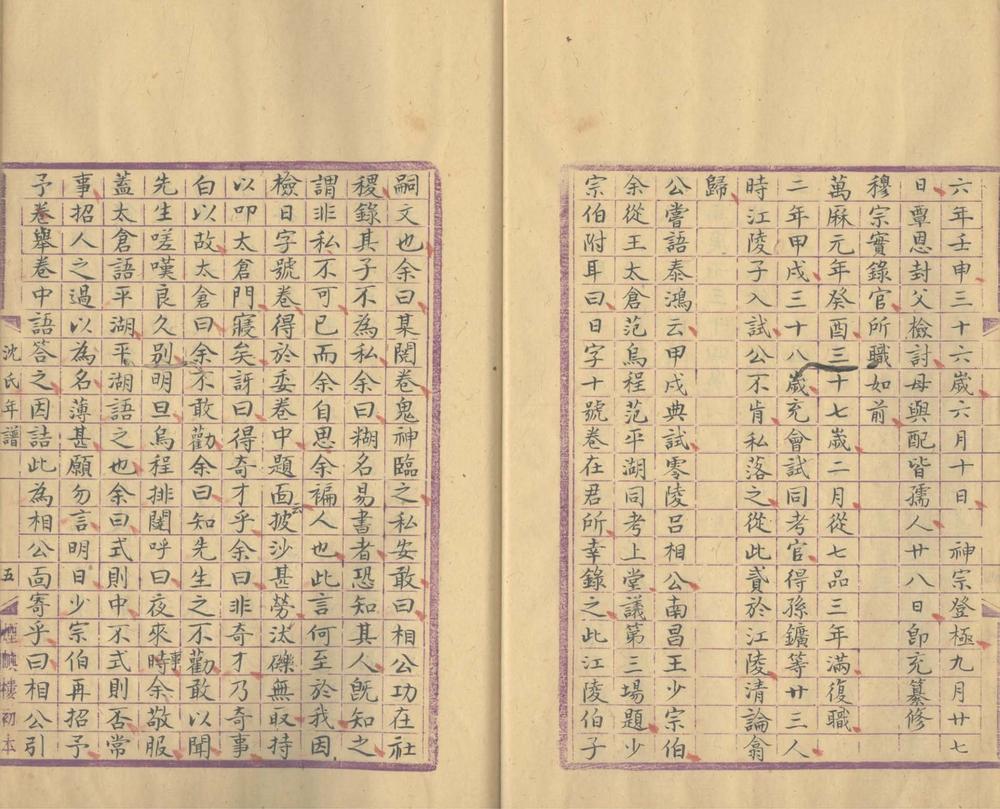 六年壬申三十六歲六月十日　神宗登極九月廿七
日覃恩封父檢討母與配皆孺人廿八日卽充纂修
穆宗實錄官所職如前
萬厤元年癸酉三十七歲二月從七品三年滿復職
二年甲戌三十八歲充會試同考官得孫鑛等廿三人
時江陵子入試公不肯私落之從此貳於江陵清論翕
歸
公嘗語泰鴻云甲戌典試零陵呂相公南昌王少宗伯
余從王太倉范烏程范平湖同考上堂議第三場題少
宗伯附耳曰日字十號卷在君所幸錄之此江陵伯子
嗣文也余曰某閱卷鬼神臨之私安敢曰相公功在社
稷錄其子不為私余曰糊名易書者恐知其人旣知之
謂非私不可已而余自思余褊人也此言何至於我因
檢日字號卷得於委卷中題面披云沙甚勞汰礫無取持
以叩太倉門寢矣訝曰得奇才乎余曰非奇才乃奇事
白以故太倉曰余不敢勸余曰知先生之不勸敢以聞
先生嗟嘆良久別明旦烏程排闥呼曰夜來時事余敬服
蓋太倉語平湖平湖語之也余曰式則中不式則否常
事招人之過以為名薄甚願勿言明日少宗伯再招予
予卷舉卷中語答之因詰此為相公面寄乎曰相公引
沈氏年譜
五
煙嶼樓初本